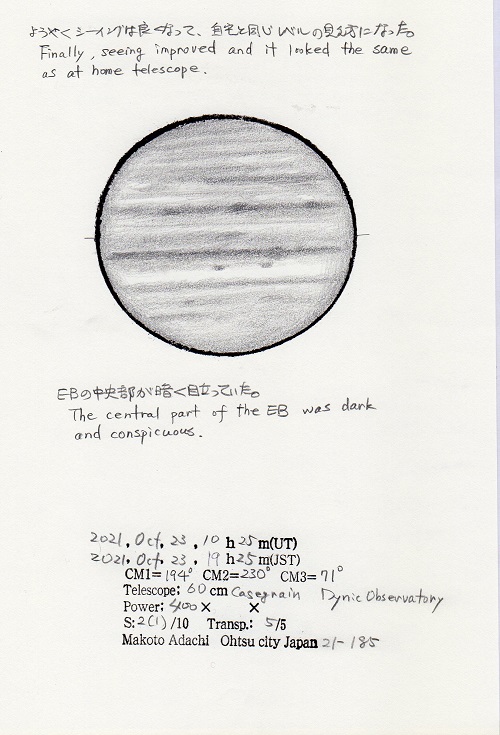 ようやくシーイングは良くなって、自宅と同じレベルの見え方になった。
Finally, seeing improved and it looked the same
as at home telescope.
EBの中央部が暗く目立っていた。
The central part of the EB was dark
and conspicuous.
2021, Oct, 23, 10 h 25 m(UT)
2021, Oct, 23, 19 h 25 m(JST)
CM1= 194° CM2= 230° CM3= 71°
Telescope: 60 cm Casegrain Dynic Observatory
Power: 400 × ×
S: 2(1) /10 Transp.: 5/5
Makoto Adachi Ohtsu city Japan 21-185